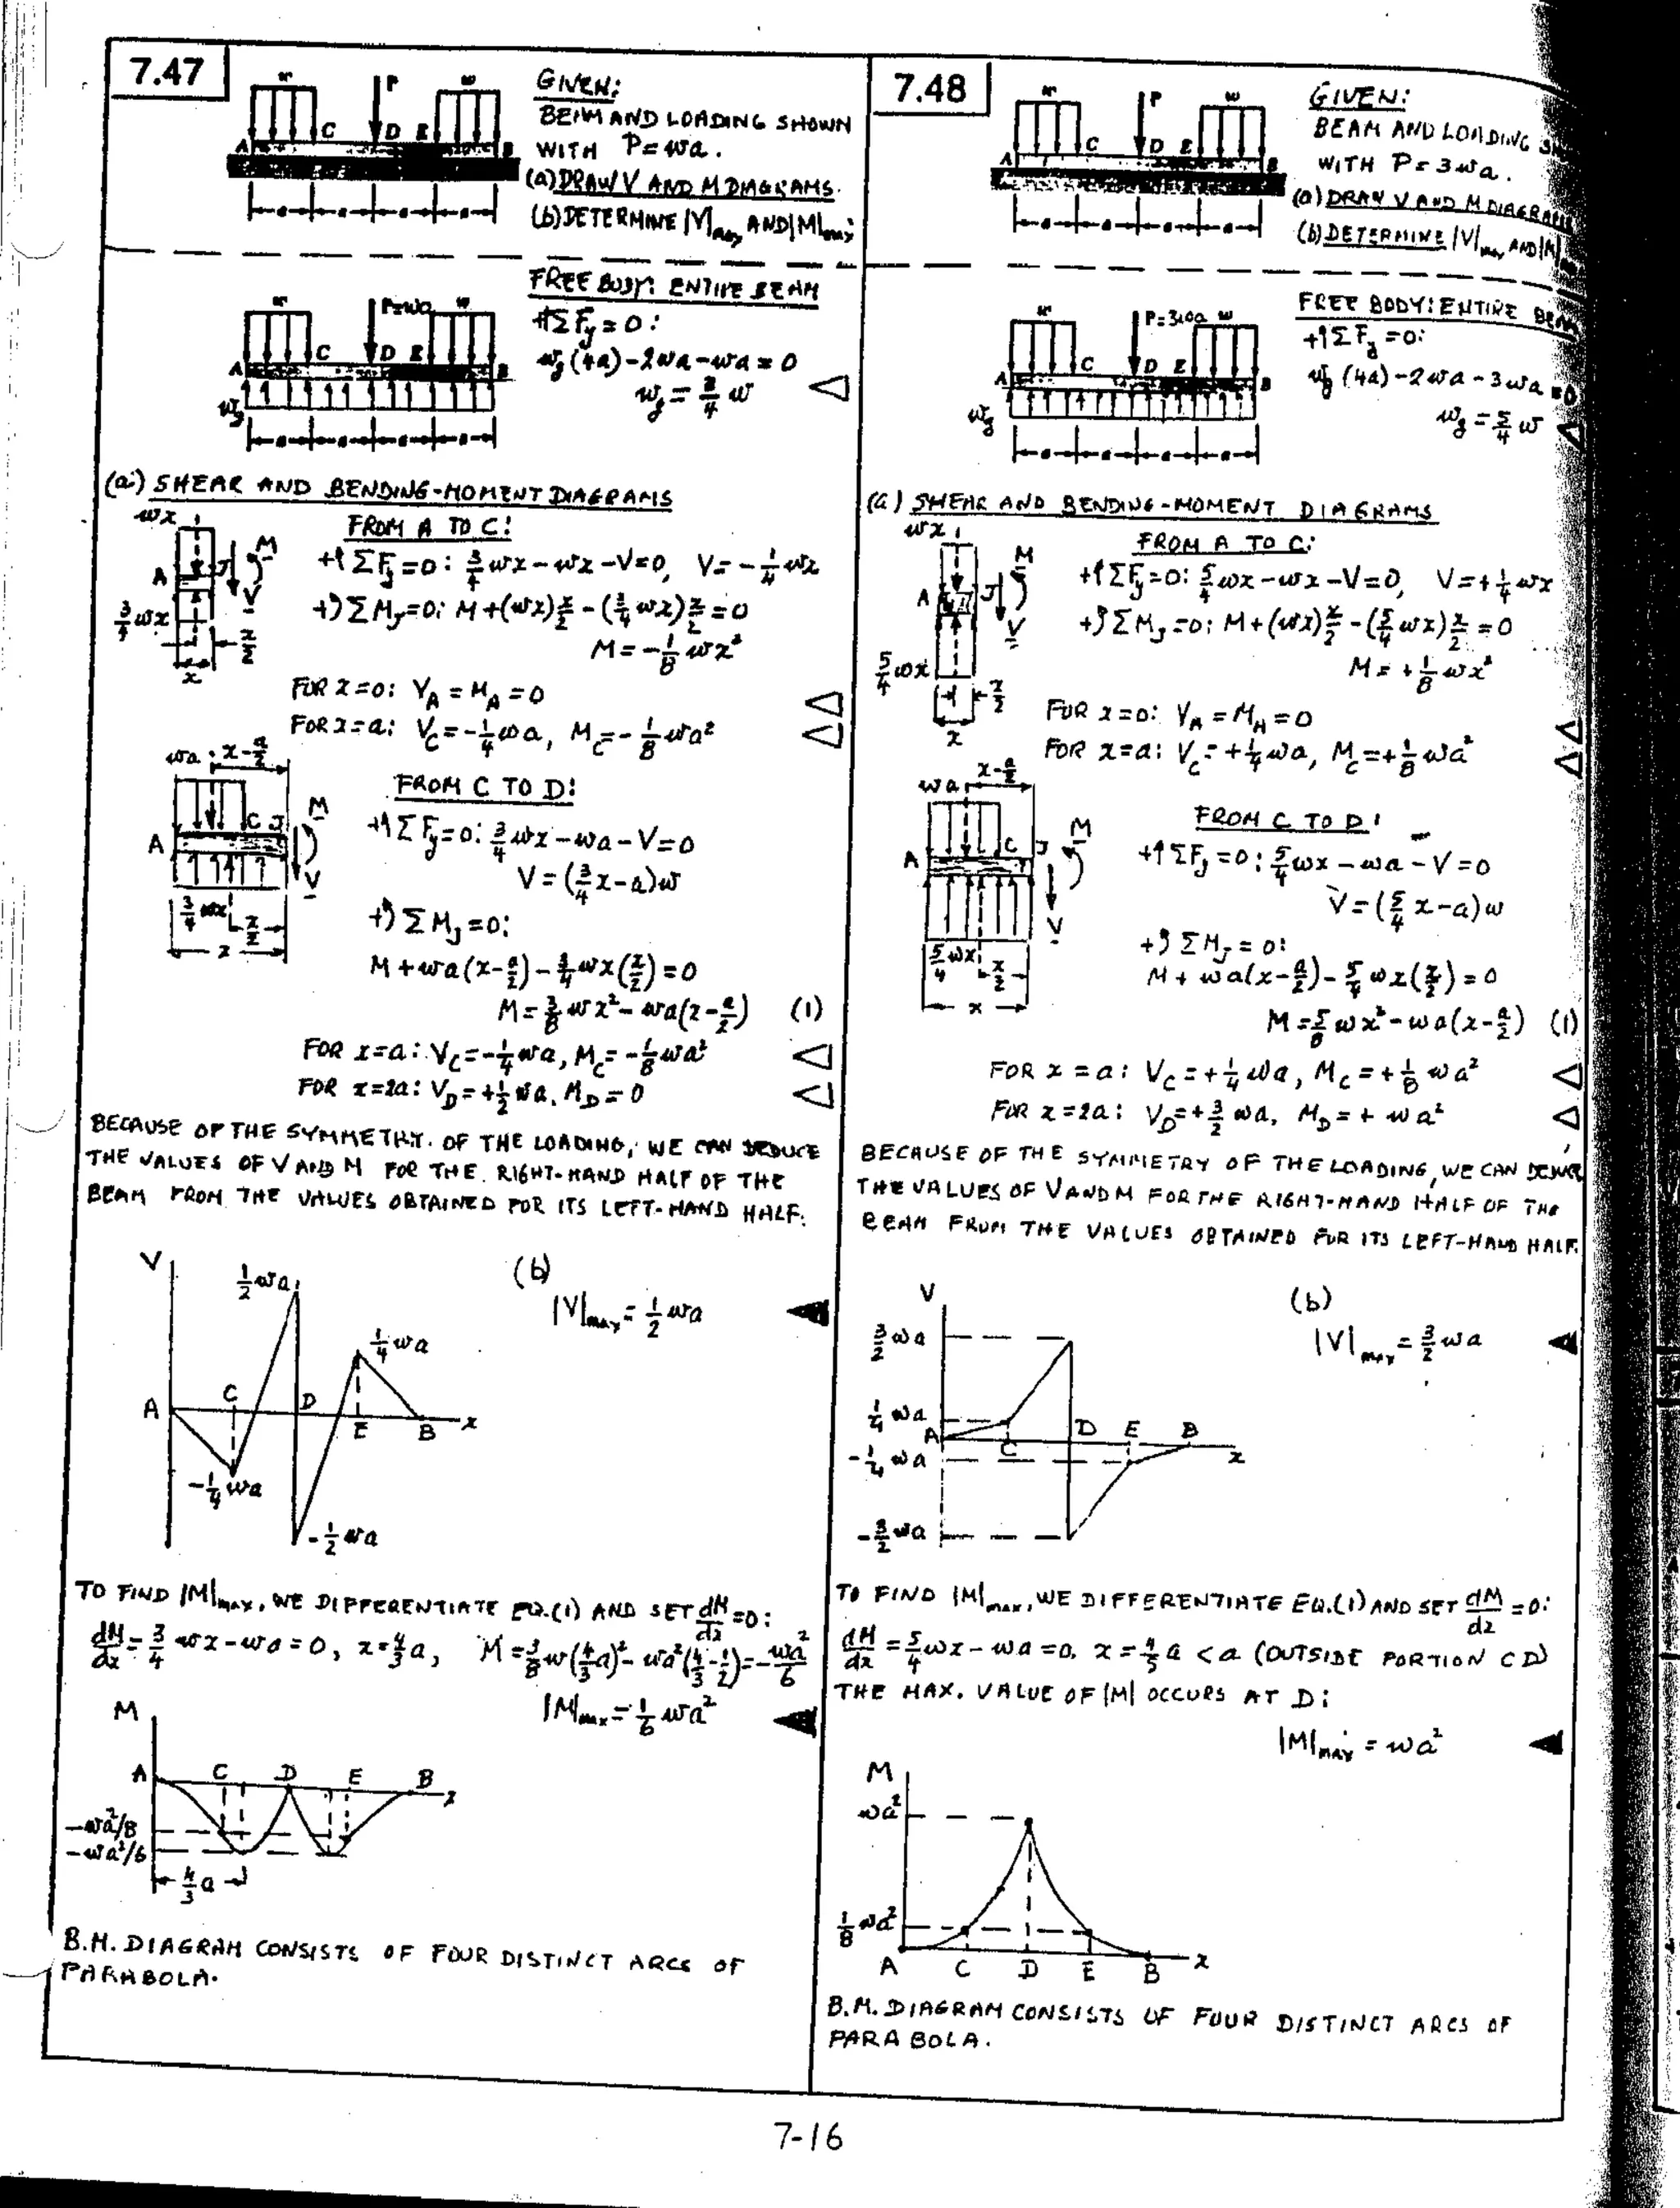 7.47
w P w
A C D E B
a a a a
GIVEN:
BEAM AND LOADING SHOWN
WITH P = wa.
(a) DRAW V AND M DIAGRAMS.
(b) DETERMINE |V|max AND |M|max.
FREE BODY: ENTIRE BEAM
w P=wa w
A C D E B
wg
a a a a
+↑ΣFy = 0:
wg (4a) - 2wa - wa = 0
wg = 3/4 w
(a) SHEAR AND BENDING-MOMENT DIAGRAMS
FROM A TO C:
wx M A J V 3/4 wx x/2 x
+↑ΣFy = 0: 3/4 wx - wx - V = 0, V = - 1/4 wx
+↺ΣMJ = 0: M + (wx) x/2 - (3/4 wx) x/2 = 0
M = - 1/8 wx²
FOR x = 0: VA = MA = 0
FOR x = a: VC = - 1/4 wa, MC = - 1/8 wa²
FROM C TO D:
wa x - a/2 A C J M V 3/4 wx x/2 x
+↑ΣFy = 0: 3/4 wx - wa - V = 0
V = (3/4 x - a) w
+↺ΣMJ = 0:
M + wa(x - a/2) - 3/4 wx (x/2) = 0
M = 3/8 wx² - wa(x - a/2) (1)
FOR x = a: VC = - 1/4 wa, MC = - 1/8 wa²
FOR x = 2a: VD = + 1/2 wa, MD = 0
BECAUSE OF THE SYMMETRY OF THE LOADING, WE CAN DEDUCE
THE VALUES OF V AND M FOR THE RIGHT-HAND HALF OF THE
BEAM FROM THE VALUES OBTAINED FOR ITS LEFT-HAND HALF.
V
1/2 wa
(b)
|V|max = 1/2 wa
1/4 wa
A C D E B x
- 1/4 wa
- 1/2 wa
TO FIND |M|max, WE DIFFERENTIATE EQ.(1) AND SET dM/dx = 0:
dM/dx = 3/4 wx - wa = 0, x = 4/3 a, M = 3/8 w (4/3 a)² - wa² (4/3 - 1/2) = - wa²/6
|M|max = 1/6 wa²
M
A C D E B x
-wa²/8
-wa²/6
4/3 a
B.M. DIAGRAM CONSISTS OF FOUR DISTINCT ARCS OF
PARABOLA.
7.48
w P w
A C D E B
a a a a
GIVEN:
BEAM AND LOADING
WITH P = 3wa.
(a) DRAW V AND M DIAGRAMS
(b) DETERMINE |V|max AND |M|
FREE BODY: ENTIRE BEAM
w P=3wa w
A C D E B
wg
a a a a
+↑ΣFy = 0:
wg (4a) - 2wa - 3wa = 0
wg = 5/4 w
(a) SHEAR AND BENDING-MOMENT DIAGRAMS
FROM A TO C:
wx M A J V 5/4 wx x/2 x
+↑ΣFy = 0: 5/4 wx - wx - V = 0, V = + 1/4 wx
+↺ΣMJ = 0: M + (wx) x/2 - (5/4 wx) x/2 = 0
M = + 1/8 wx²
FOR x = 0: VA = MA = 0
FOR x = a: VC = + 1/4 wa, MC = + 1/8 wa²
FROM C TO D:
wa x - a/2 A C J M V 5/4 wx x/2 x
+↑ΣFy = 0: 5/4 wx - wa - V = 0
V = (5/4 x - a) w
+↺ΣMJ = 0:
M + wa(x - a/2) - 5/4 wx (x/2) = 0
M = 5/8 wx² - wa(x - a/2) (1)
FOR x = a: VC = + 1/4 wa, MC = + 1/8 wa²
FOR x = 2a: VD = + 3/2 wa, MD = + wa²
BECAUSE OF THE SYMMETRY OF THE LOADING, WE CAN DEDUCE
THE VALUES OF V AND M FOR THE RIGHT-HAND HALF OF THE
BEAM FROM THE VALUES OBTAINED FOR ITS LEFT-HAND HALF.
V
(b)
3/2 wa
|V|max = 3/2 wa
1/4 wa
A C D E B x
- 1/4 wa
- 3/2 wa
TO FIND |M|max, WE DIFFERENTIATE EQ.(1) AND SET dM/dx = 0:
dM/dx = 5/4 wx - wa = 0, x = 4/5 a < a (OUTSIDE PORTION CD)
THE MAX. VALUE OF |M| OCCURS AT D:
|M|max = wa²
M
wa²
1/8 wa²
A C D E B x
B.M. DIAGRAM CONSISTS OF FOUR DISTINCT ARCS OF
PARABOLA.
7-16